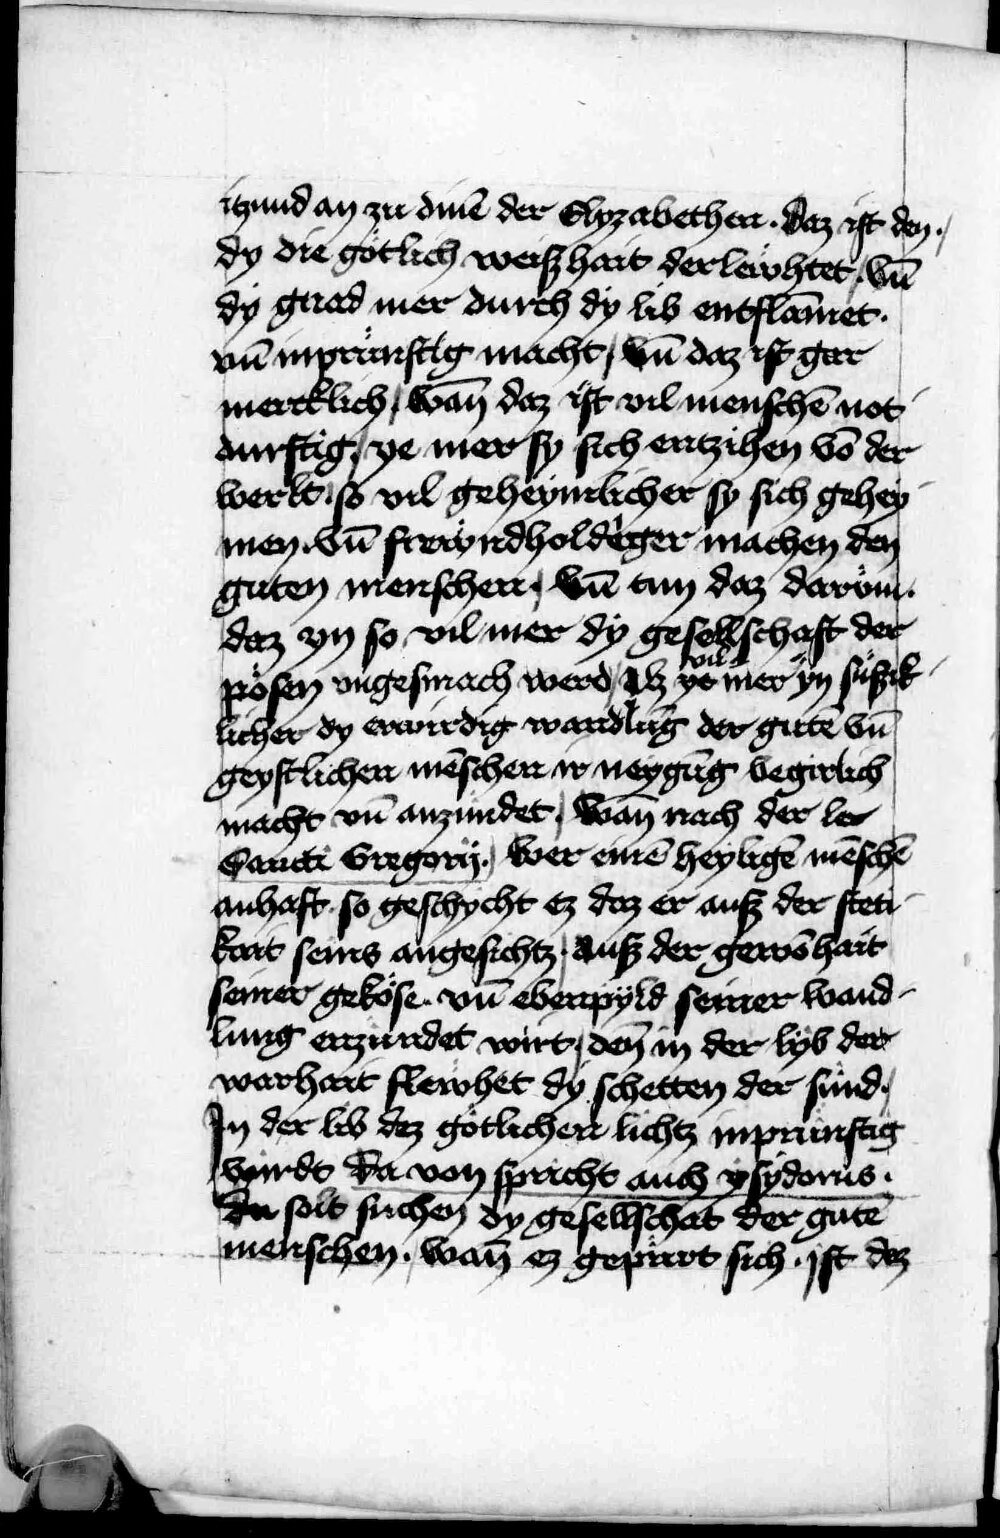 itzund an zu dinē der Elyzabethen. Daz ist den.
dy die götlich weiszhait derlewhtet, vn̄
dy gnad mer durch dy lib entflām̄et.
vn̄ inprünstig macht, vn̄ daz ist gar
mercklich, wan̄ daz ist vil menschē not-
durftig, ye mer sy sich entzihen vō der
werlt. so vil geheymlicher sy sich gehey-
men. vn̄ frewndholdeger machen den
guten menschen, vn̄ tun daz darvm.
daz yn so vil mer dy gesellschaft der
pösen vngesmach werd, Alz vil mer yn süszik-
licher dy erwirdig wandlūg der gutē vn̄
geystlichen mēschen ir neygūg begirlich
macht vn̄ anzündet, Wan̄ nach der ler
Sancti Gregorij. Wer einē heyligē mēschē
anhaft. so geschycht ez daz er ausz der steti-
kait seins angesichtz. ausz der gewōhait
seiner geköse. vn̄ ebenpyld seiner wand-
lung enzündet wirt, den̄ in der lyb der
warhait flewhet dy schetten der sünd.
In der lib dez götlichen lichtz inprünstig
würdt Da von spricht auch ysydorus.
Du solt suchen dy gesellschat der gutē
menschen. wan̄ ez gepürt sich. ist dez